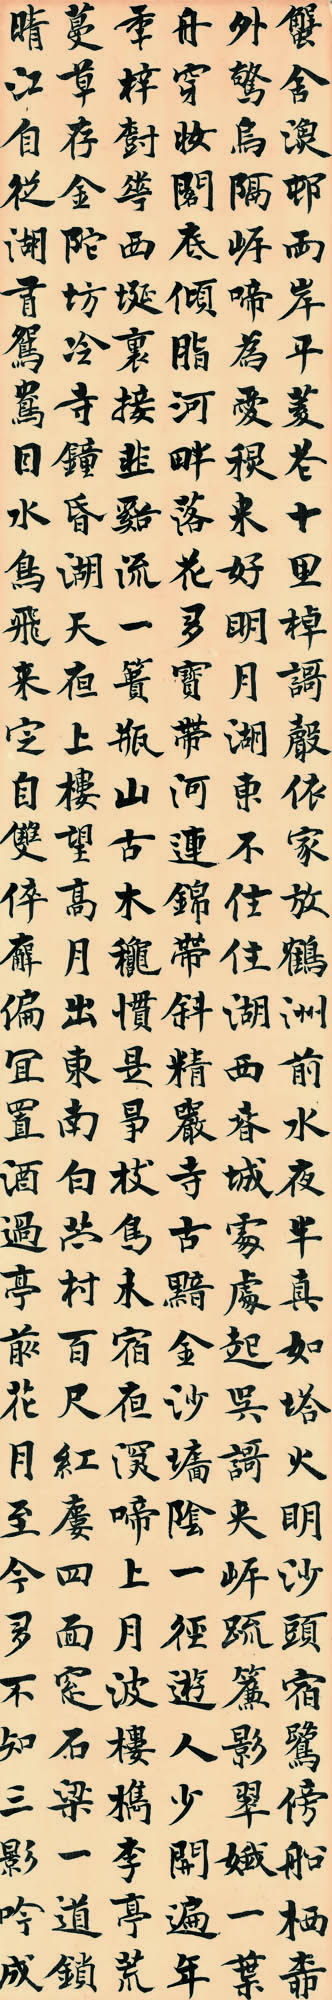 蟹舍漁邨兩岸平菱花十里棹謌聲依家放鶴洲前水夜半真如塔火明沙頭宿鷺傍船栖柰
外驚烏隔岸啼為愛穏来好明月湖東不住住湖西春城處處起吳謌夾岸疏簾影翠娥一葉
舟穿妝閣底傾脂河畔落花多寶帶河連錦帶斜精嚴寺古黯金沙墻陰一徑遊人少開遍年
年梓樹華西埏裏接韭谿流一簣瓶山古木穐慣是爭枝鳥未宿夜深啼上月波樓檇李亭荒
蔓草存金陀坊冷寺鐘昏湖天夜上樓望高月出東南白苎村百尺紅廔四面窗石梁一道鎖
晴江自從湖有鴛鴦目水鳥飛来定自雙倅廨偏宜置酒過亭前花月至今多不知三影吟成